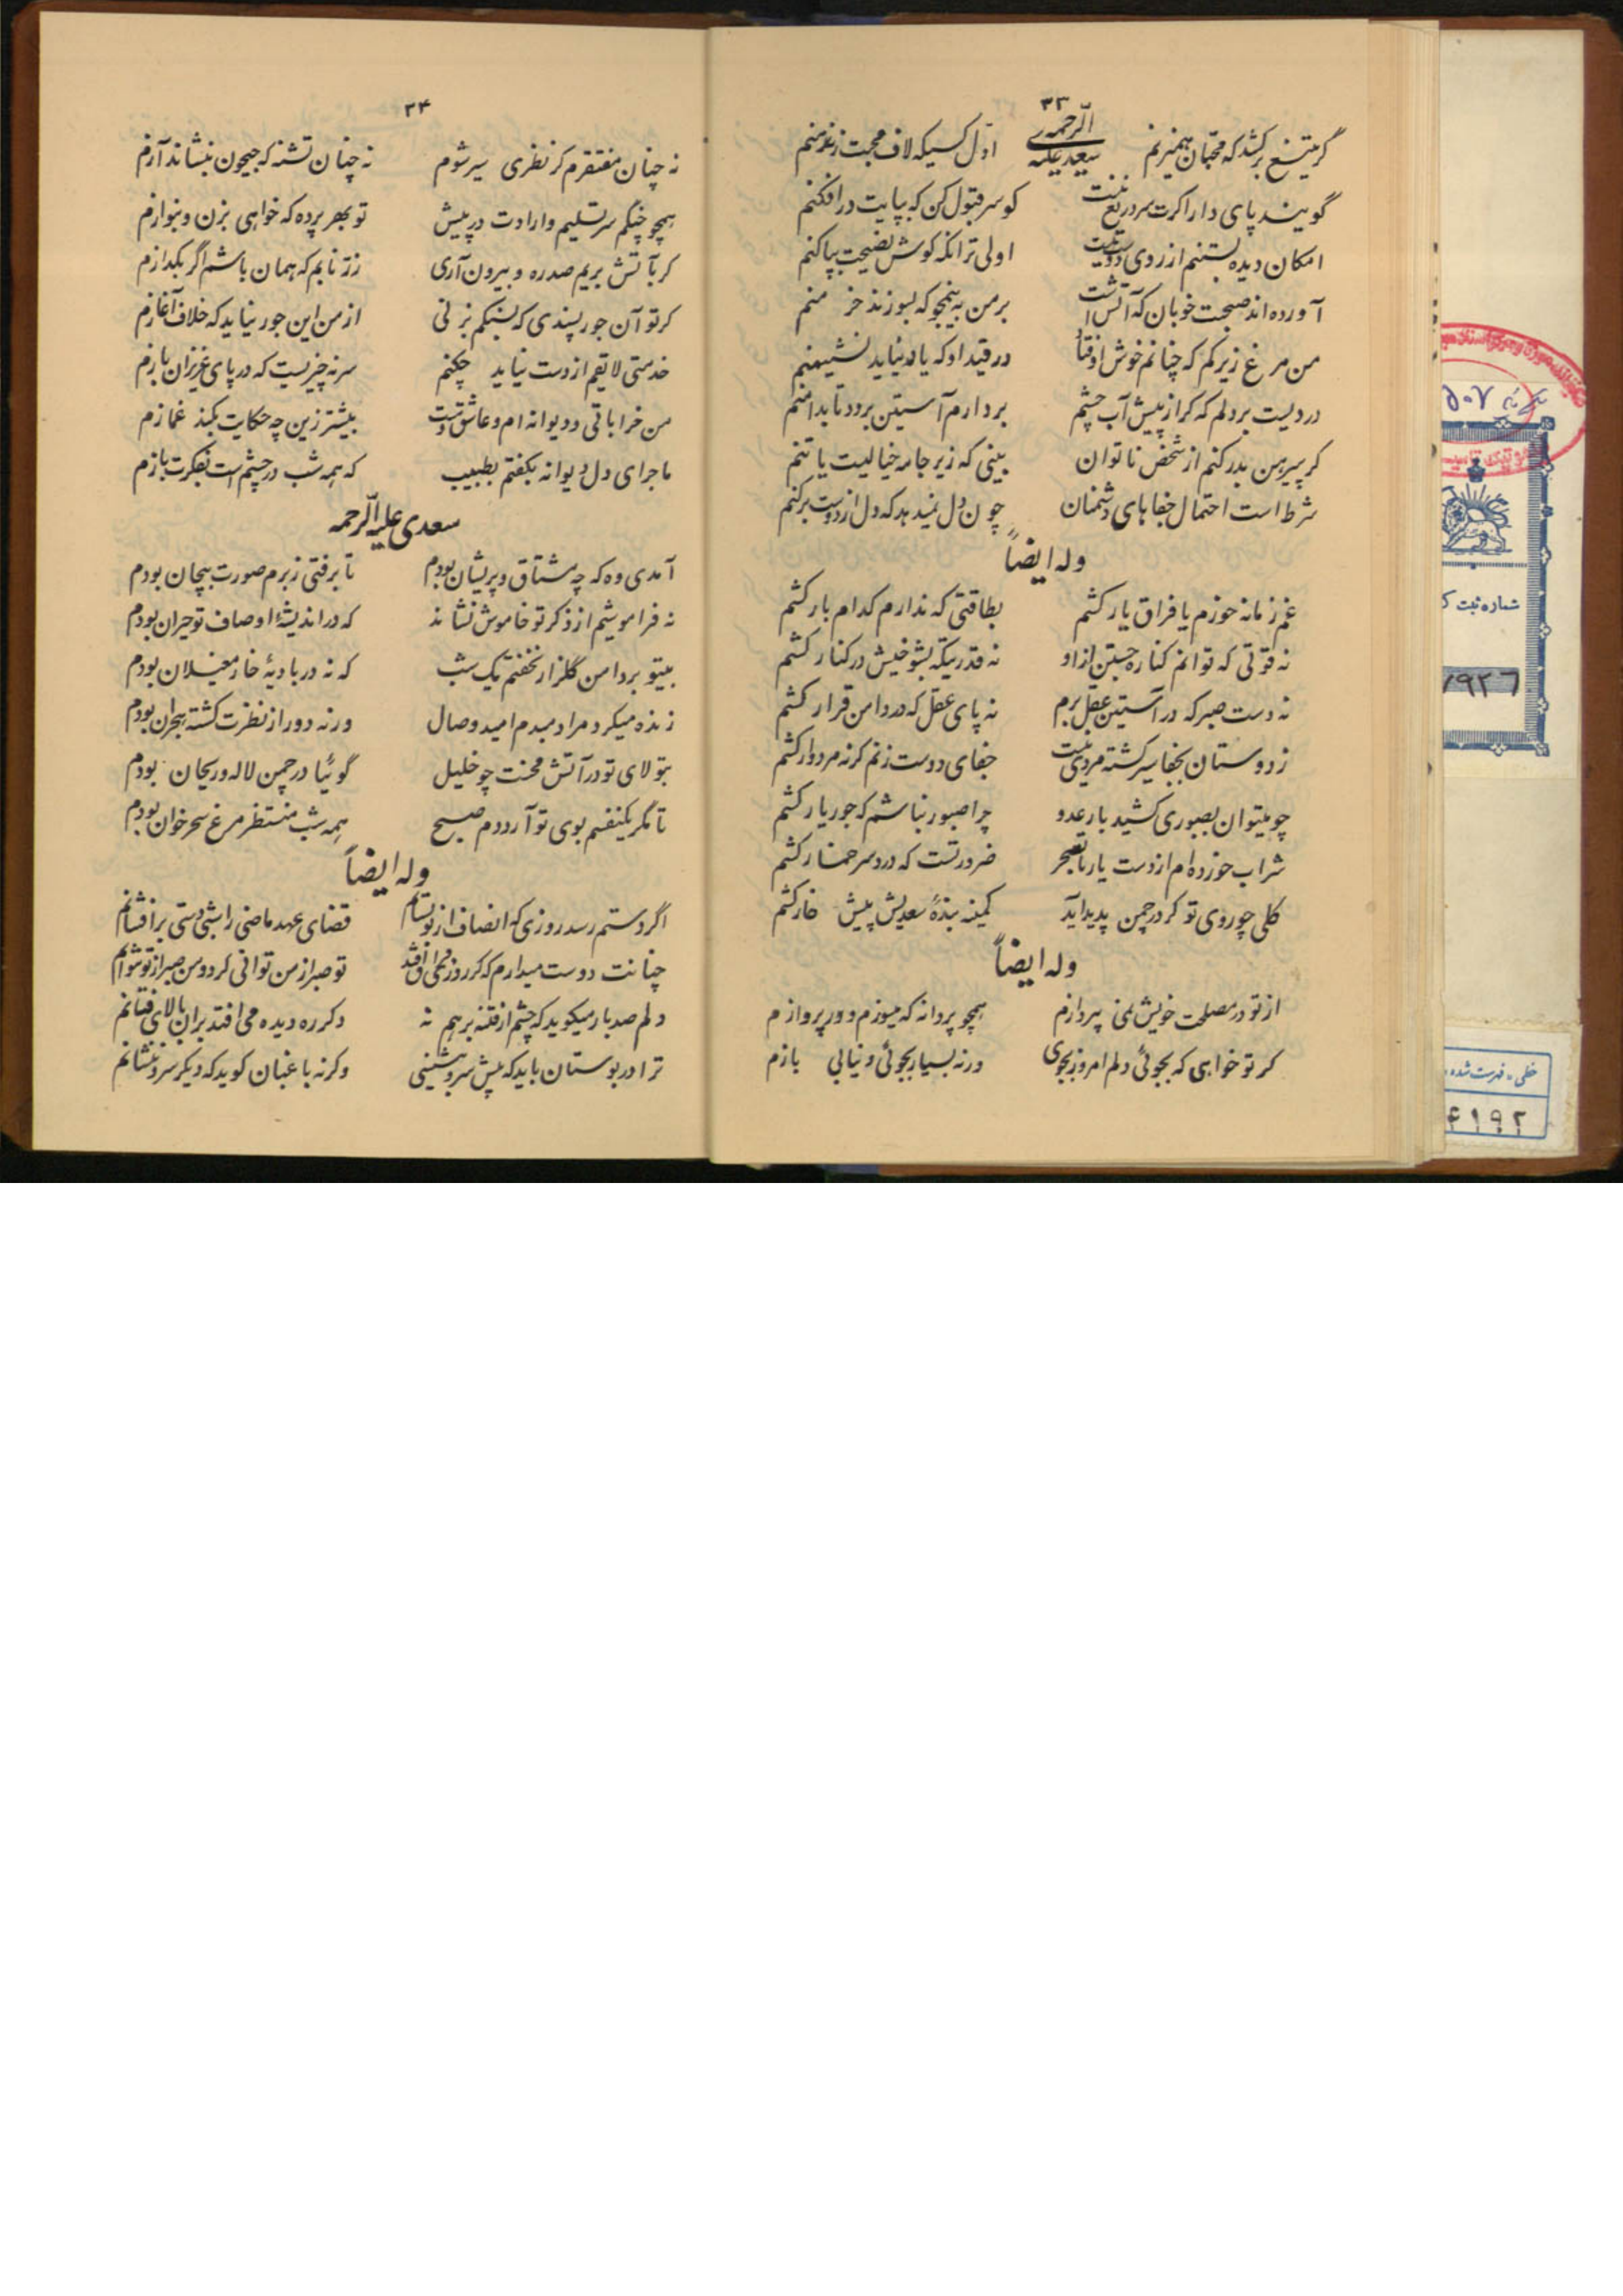 ۳۳
گر تیغ برکشد که محبان همیزنم سعدی علیه الرحمه اول کسیکه لاف محبت زند منم
گویند پای دار اگرت سر دریغ نیست کو سر قبول کن که بپایت در افکنم
امکان دیده بستنم از روی دوست نیست اولی تر انکه کوش نصیحت بیاکنم
آورده اند صحبت خوبان که آتش است بر من به نیمجو که بسوزند خرمنم
من مرغ زیرکم که چنانم خوش اوفتاد در قید او که یاد نیاید نشیمنم
دردیست بر دلم که کر از پیش آب چشم بردارم آستین برود تا بدامنم
کر پیرهن بدر کنم از شخص ناتوان بینی که زیر جامه خیالیست یا تنم
شرط است احتمال جفاهای دشمنان چون دل نمیدهد که دل از دوست برکنم
وله ایضاً
غم زمانه خورم یا فراق یار کشم بطاقتی که ندارم کدام بار کشم
نه قوتی که توانم کناره جستن از او نه قدرتیکه بشوخیش در کنار کشم
نه دست صبر که در آستین عقل برم نه پای عقل که در دامن قرار کشم
ز دوستان بجفا سیر کشته مردی نیست جفای دوست زنم کرنه مردوار کشم
چو میتوان بصبوری کشید بار عدو چرا صبور نباشم که جور یار کشم
شراب خورده ام از دست یار تا بسحر ضرورتست که درد سر خمار کشم
کلی چو روی تو کر در چمن پدید آید کمینه بندهٔ سعدیش پیش خار کشم
وله ایضاً
از تو در مصلحت خویش نمی پردازم همچو پروانه که میسوزم و در پروازم
کر تو خواهی که بجوئی دلم امروز بجوی ورنه بسیار بجوئی و نیابی بازم
۳۴
نه چنان مفتقرم کز نظری سیر شوم نه چنان تشنه که جیحون بنشاند آزم
همچو چنکم سر تسلیم و ارادت در پیش تو بهر پرده که خواهی بزن و بنوازم
کر بآتش بریم صد ره و بیرون آری زر نابم که همان باشم اگر بکدازم
کر تو آن جور پسندی که بسنکم بزنی از من این جور نیاید که خلاف آغازم
خدمتی لایقم از دست نیاید چکنم سر نه چیزیست که در پای عزیزان بازم
من خراباتی و دیوانه ام و عاشق مست بیشتر زین چه حکایت بکند غمازم
ماجرای دل دیوانه بکفتم بطبیب که همه شب در چشم است بفکرت بازم
سعدی علیه الرحمه
آمدی وه که چه مشتاق و پریشان بودم تا برفتی ز برم صورت بیجان بودم
نه فراموشیم از ذکر تو خاموش نشاند که در اندیشهٔ اوصاف تو حیران بودم
بیتو بر دامن کلزار نخفتم یک شب که نه در بادیهٔ خار مغیلان بودم
زنده میکرد مرا دمبدم امید وصال ورنه دور از نظرت کشته هجران بودم
بتولای تو در آتش محنت چو خلیل گوئیا در چمن لاله و ریحان بودم
تا مکر یکنفسم بوی تو آرد دم صبح همه شب منتظر مرغ سحر خوان بودم
وله ایضاً
اگر دستم رسد روزی که انصاف از تو بستانم قضای عهد ماضی را شبی دستی برافشانم
چنانت دوست میدارم که کر روزی فراق افتد تو صبر از من توانی کرد و من صبر از تو نتوانم
دلم صد بار میکوید که چشم از فتنه بر هم نه دکر ره دیده می افتد بران بالای فتانم
ترا در بوستان باید که پیش سرو بنشینی وکرنه باغبان کوید که دیکر سرو ننشانم
شماره ثبت
۵۰۷
۷۹۲۶
خطی - فهرست شده
۴۱۹۲